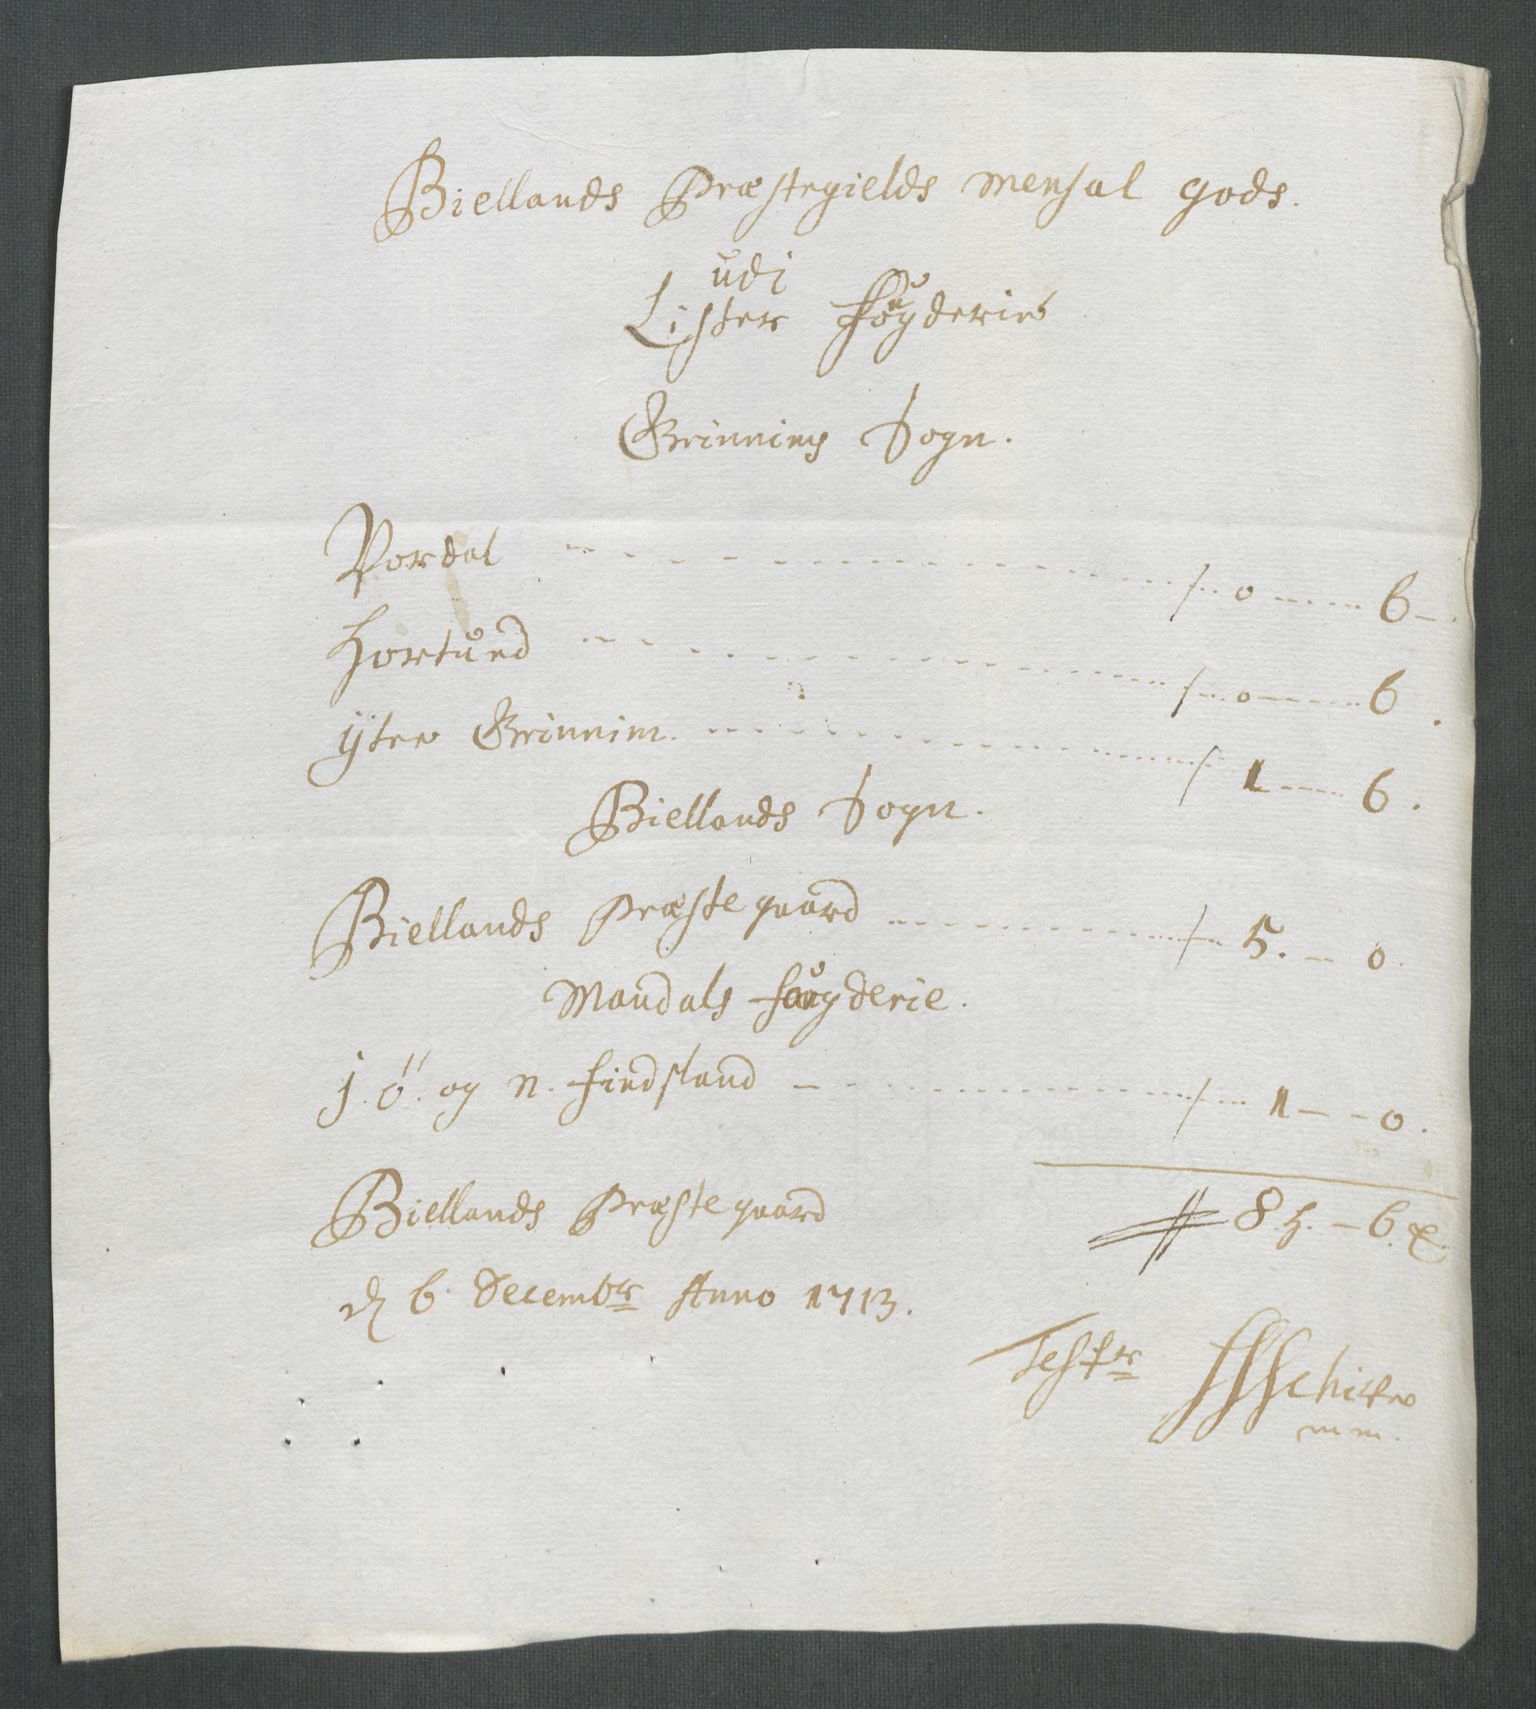 Biellands Præstegields mensal gods.
udi
Lister fougderie
Grinnims Sogn.
Vordal - - - o - - - 6 -
Hortund - - - o - - - 6.
ÿtre Grinnim. - - - 1 - - - 6.
Biellands Sogn.
Biellands Præste gaard - - - 5. - o.
Mandals fougderie.
j. ö. og n. findsland - - - 1 - - o.
Biellands Præste gaard 8 h. - 6.
d 6. Decembr Anno 1713.
Testr Schifte
mm.